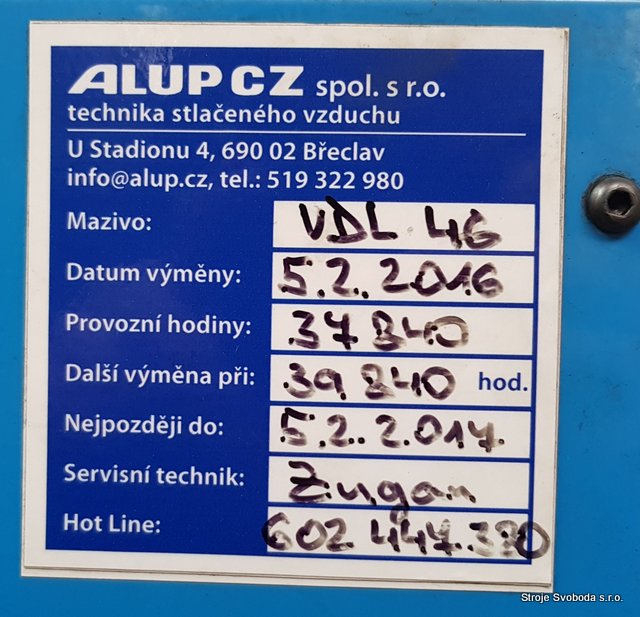 ALUP CZ spol. s r.o.
technika stlačeného vzduchu
U Stadionu 4, 690 02 Břeclav
info@alup.cz, tel.: 519 322 980
Mazivo: VDL 46
Datum výměny: 5.2.2016
Provozní hodiny: 37 840
Další výměna při: 39 840 hod.
Nejpozději do: 5.2.2.017.
Servisní technik: Zugan
Hot Line: 602 447.330
Stroje Svoboda s.r.o.